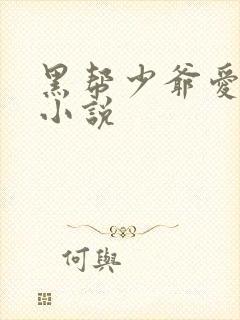 黑帮少爷愛
小説
何與